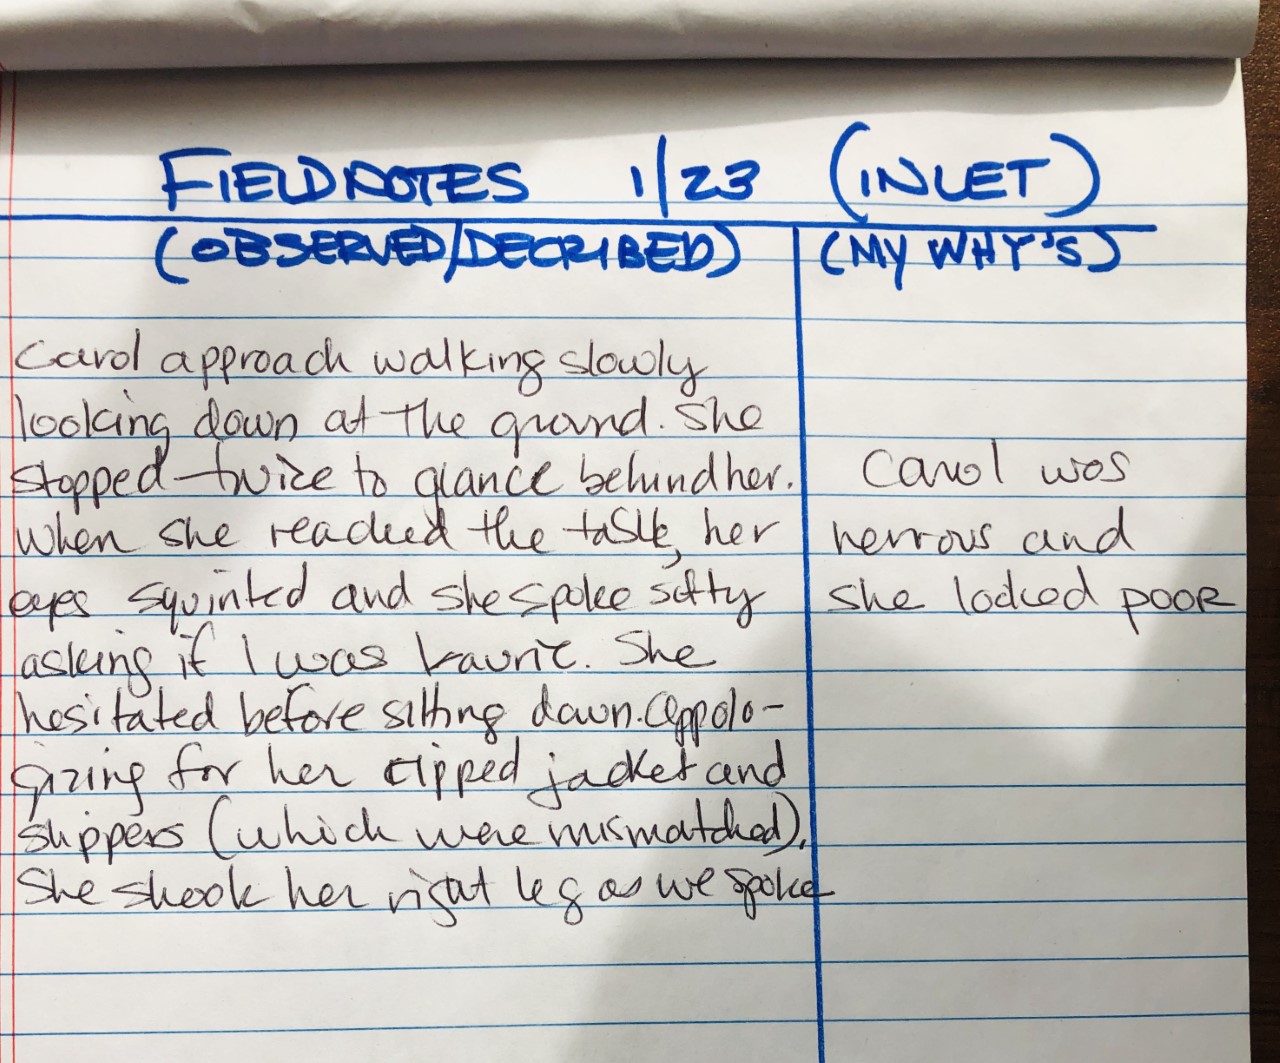 FIELDNOTES 1/23 (INLET)
(OBSERVED/DECRIBED) (MY WHY'S)
Carol approach walking slowly
looking down at the ground. She
stopped twice to glance behind her.
When she reached the table, her
eyes squinted and she spoke softly
asking if I was Laurie. She
hesitated before sitting down. Appolo-
gizing for her ripped jacket and
slippers (which were mismatched).
She shook her right leg as we spoke
Carol was
nervous and
she looked poor